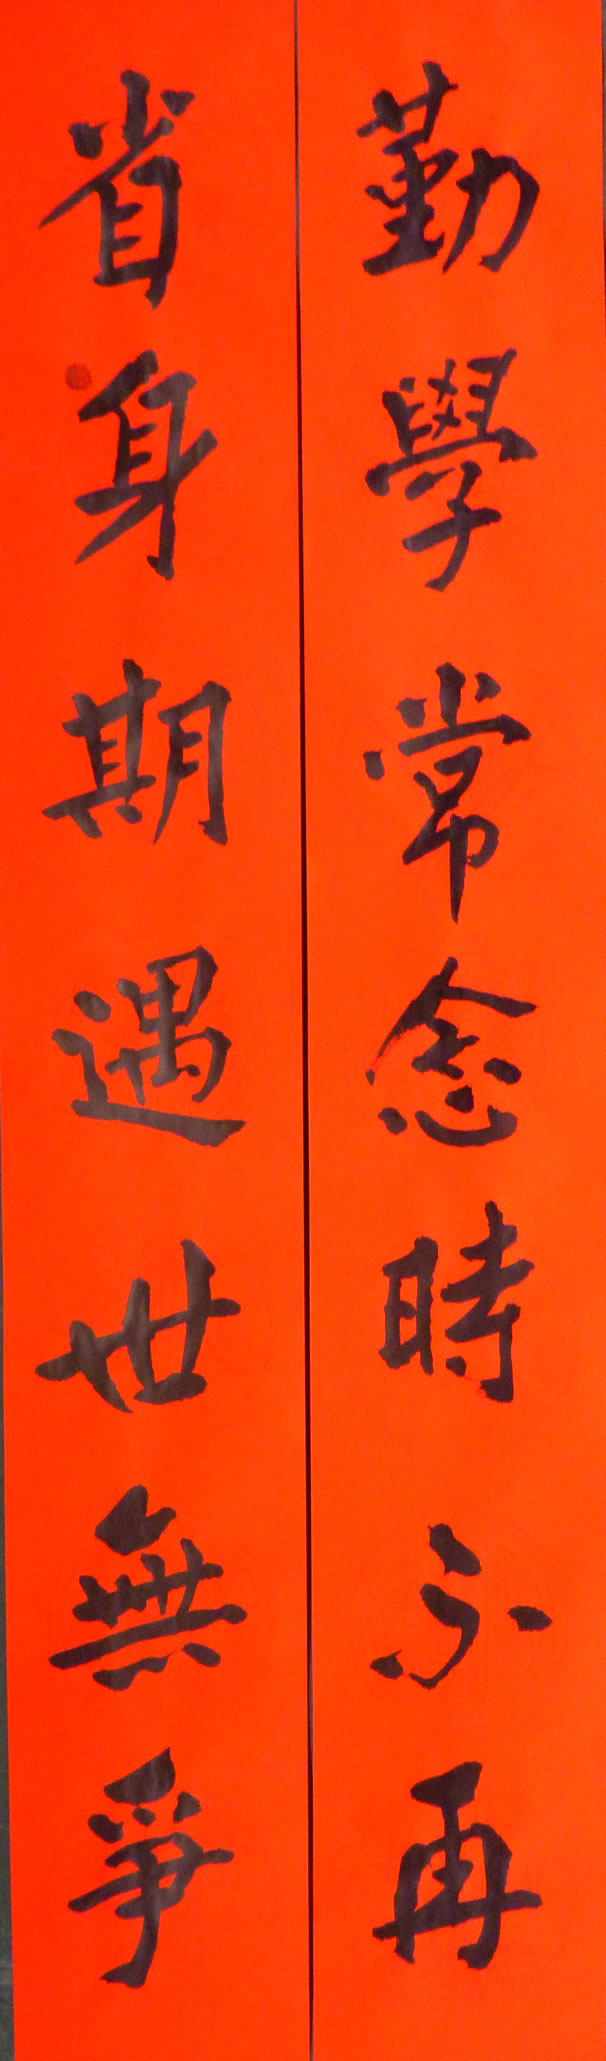 勤學常念時不再
省身期遇世無爭